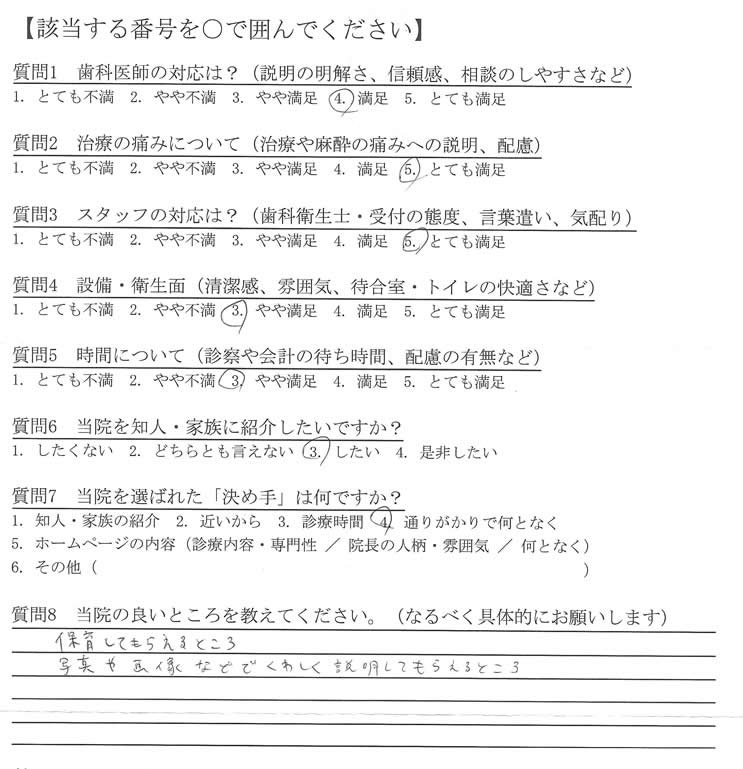 【該当する番号を〇で囲んでください】
質問1 歯科医師の対応は？（説明の明解さ、信頼感、相談のしやすさなど）
1. とても不満 2. やや不満 3. やや満足 4. 満足 5. とても満足
質問2 治療の痛みについて（治療や麻酔の痛みへの説明、配慮）
1. とても不満 2. やや不満 3. やや満足 4. 満足 5. とても満足
質問3 スタッフの対応は？（歯科衛生士・受付の態度、言葉遣い、気配り）
1. とても不満 2. やや不満 3. やや満足 4. 満足 5. とても満足
質問4 設備・衛生面（清潔感、雰囲気、待合室・トイレの快適さなど）
1. とても不満 2. やや不満 3. やや満足 4. 満足 5. とても満足
質問5 時間について（診察や会計の待ち時間、配慮の有無など）
1. とても不満 2. やや不満 3. やや満足 4. 満足 5. とても満足
質問6 当院を知人・家族に紹介したいですか？
1. したくない 2. どちらとも言えない 3. したい 4. 是非したい
質問7 当院を選ばれた「決め手」は何ですか？
1. 知人・家族の紹介 2. 近いから 3. 診療時間 4. 通りがかりで何となく
5. ホームページの内容（診療内容・専門性 ／ 院長の人柄・雰囲気 ／ 何となく）
6. その他（ ）
質問8 当院の良いところを教えてください。（なるべく具体的にお願いします）
保育してもらえるところ
写真や画像などでくわしく説明してもらえるところ